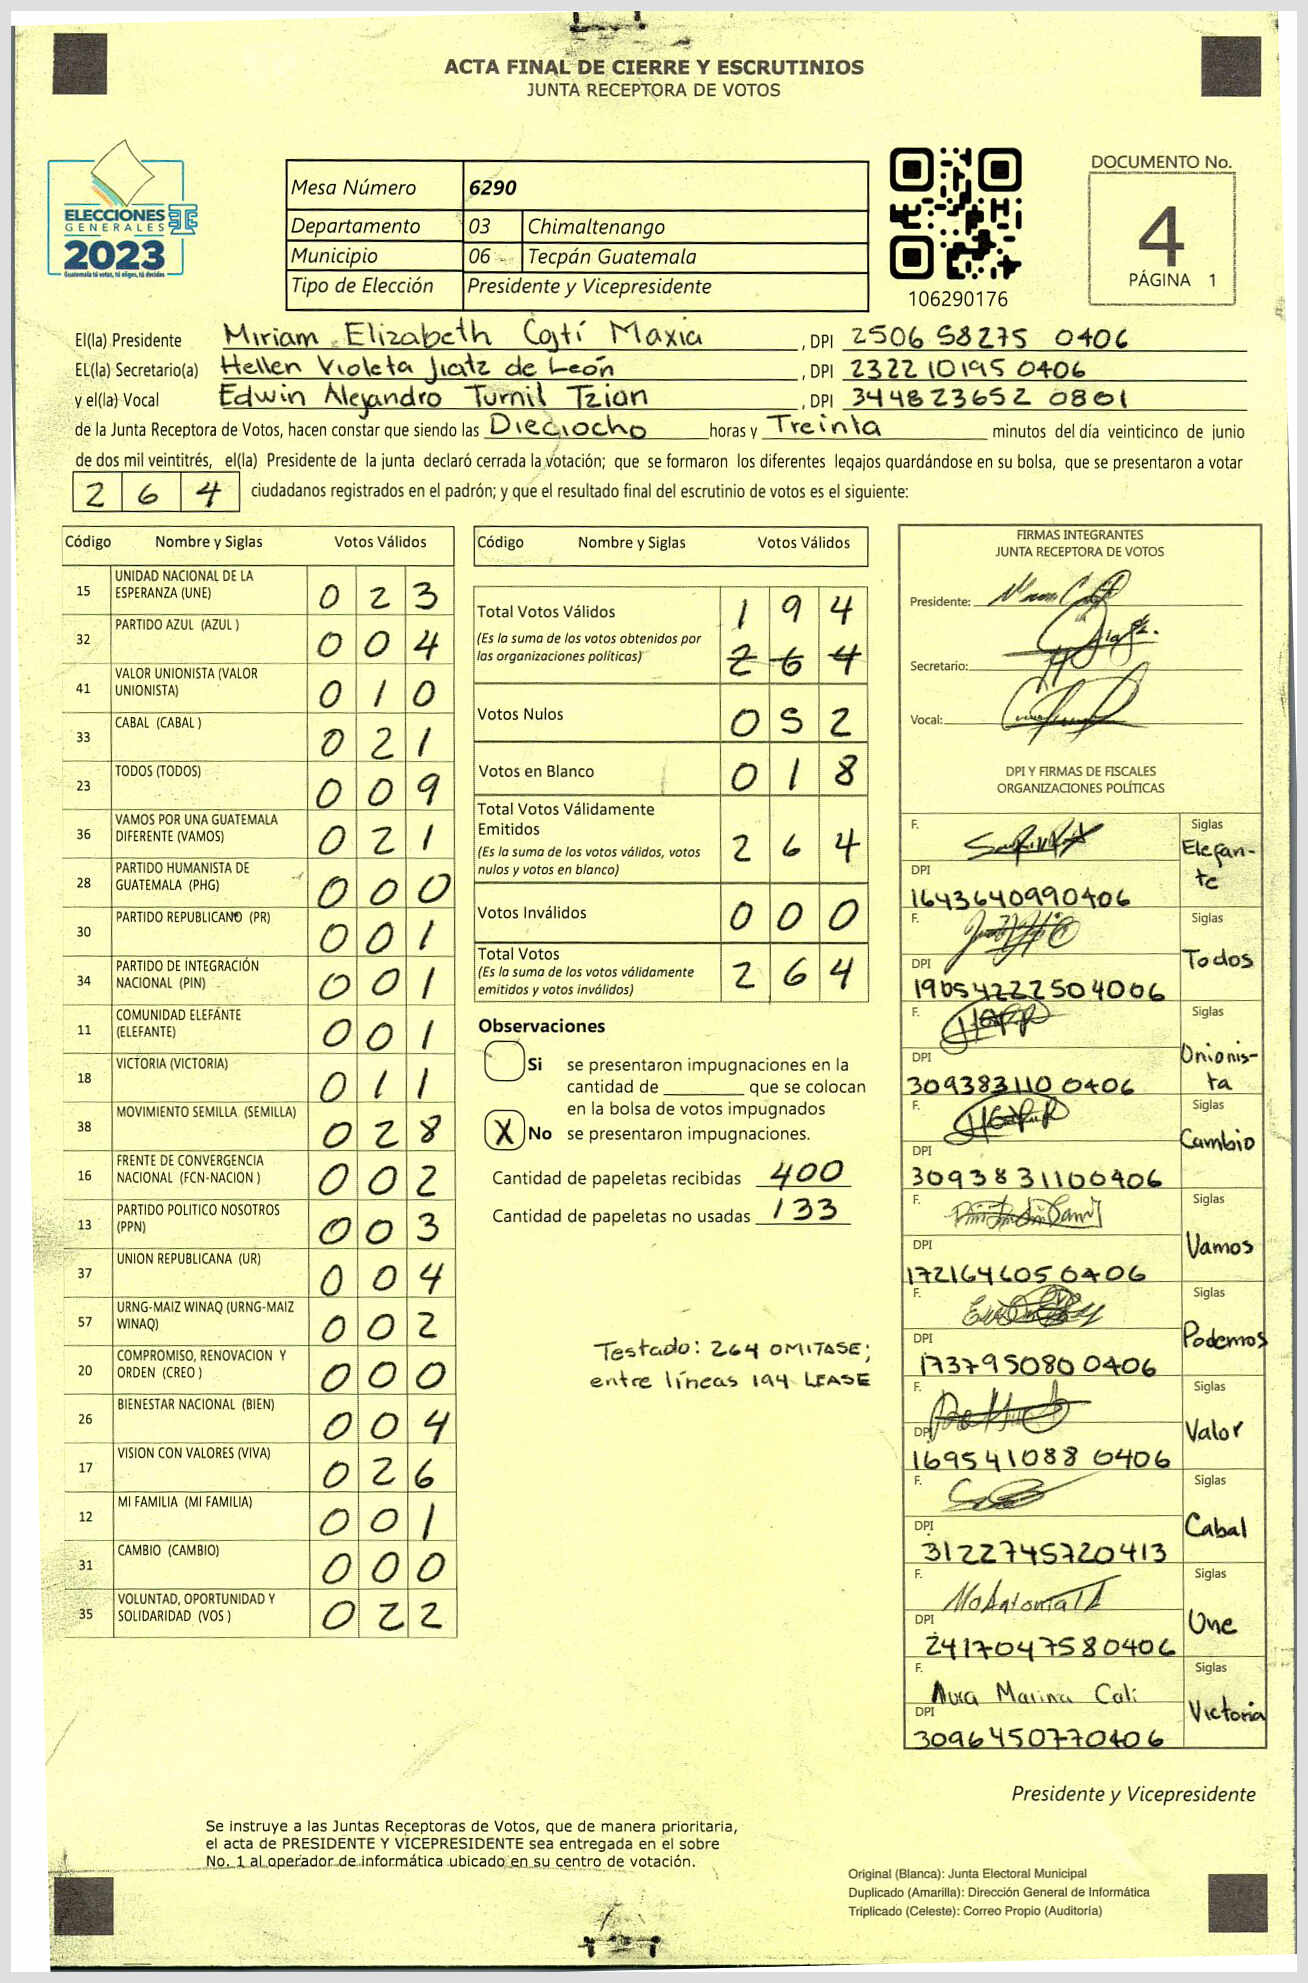 ACTA FINAL DE CIERRE Y ESCRUTINIOS
JUNTA RECEPTORA DE VOTOS
ELECCIONES
GENERALES
2023
Guatemala tú votas, tú eliges, tú decides
Mesa Número 6290
Departamento 03 Chimaltenango
Municipio 06 Tecpán Guatemala
Tipo de Elección Presidente y Vicepresidente
106290176
DOCUMENTO No.
4
PÁGINA 1
El(la) Presidente Miriam Elizabeth Cojtí Maxia, DPI 2506 58275 0406
EL(la) Secretario(a) Hellen Violeta Jiatz de León, DPI 2322 10195 0406
y el(la) Vocal Edwin Alejandro Turnil Tzian, DPI 344823652 0801
de la Junta Receptora de Votos, hacen constar que siendo las Dieciocho horas y Treinta minutos del día veinticinco de junio
de dos mil veintitrés, el(la) Presidente de la junta declaró cerrada la votación; que se formaron los diferentes legajos guardándose en su bolsa, que se presentaron a votar
2 6 4 ciudadanos registrados en el padrón; y que el resultado final del escrutinio de votos es el siguiente:
Código Nombre y Siglas Votos Válidos
15 UNIDAD NACIONAL DE LA ESPERANZA (UNE) 0 2 3
32 PARTIDO AZUL (AZUL ) 0 0 4
41 VALOR UNIONISTA (VALOR UNIONISTA) 0 1 0
33 CABAL (CABAL ) 0 2 1
23 TODOS (TODOS) 0 0 9
36 VAMOS POR UNA GUATEMALA DIFERENTE (VAMOS) 0 2 1
28 PARTIDO HUMANISTA DE GUATEMALA (PHG) 0 0 0
30 PARTIDO REPUBLICANO (PR) 0 0 1
34 PARTIDO DE INTEGRACIÓN NACIONAL (PIN) 0 0 1
11 COMUNIDAD ELEFÁNTE (ELEFANTE) 0 0 1
18 VICTORIA (VICTORIA) 0 1 1
38 MOVIMIENTO SEMILLA (SEMILLA) 0 2 8
16 FRENTE DE CONVERGENCIA NACIONAL (FCN-NACION ) 0 0 2
13 PARTIDO POLITICO NOSOTROS (PPN) 0 0 3
37 UNION REPUBLICANA (UR) 0 0 4
57 URNG-MAIZ WINAQ (URNG-MAIZ WINAQ) 0 0 2
20 COMPROMISO, RENOVACION Y ORDEN (CREO ) 0 0 0
26 BIENESTAR NACIONAL (BIEN) 0 0 4
17 VISION CON VALORES (VIVA) 0 2 6
12 MI FAMILIA (MI FAMILIA) 0 0 1
31 CAMBIO (CAMBIO) 0 0 0
35 VOLUNTAD, OPORTUNIDAD Y SOLIDARIDAD (VOS ) 0 2 2
Código Nombre y Siglas Votos Válidos
Total Votos Válidos 1 9 4
(Es la suma de los votos obtenidos por las organizaciones políticas) 2 6 4
Votos Nulos 0 5 2
Votos en Blanco 0 1 8
Total Votos Válidamente Emitidos
(Es la suma de los votos válidos, votos nulos y votos en blanco) 2 6 4
Votos Inválidos 0 0 0
Total Votos
(Es la suma de los votos válidamente emitidos y votos inválidos) 2 6 4
Observaciones
Si se presentaron impugnaciones en la
cantidad de ________ que se colocan
en la bolsa de votos impugnados
X No se presentaron impugnaciones.
Cantidad de papeletas recibidas 400
Cantidad de papeletas no usadas 133
Testado: 264 OMITASE;
entre líneas 194 LEASE
FIRMAS INTEGRANTES
JUNTA RECEPTORA DE VOTOS
Presidente:
Secretario:
Vocal:
DPI Y FIRMAS DE FISCALES
ORGANIZACIONES POLÍTICAS
F. Siglas Elefan-te
DPI 1643640990406
F. Siglas Todos
DPI 19054222504006
F. Siglas Unionis-ta
DPI 309383110 0406
F. Siglas Cambio
DPI 3093831100406
F. Siglas Vamos
DPI 172164605 0406
F. Siglas Podemos
DPI 173795080 0406
F. Siglas Valor
DPI 169541088 0406
F. Siglas Cabal
DPI 3122745720413
F. Siglas Une
DPI 2417047580406
F. Aura Marina Cali Siglas Victoria
DPI 3096450770406
Presidente y Vicepresidente
Se instruye a las Juntas Receptoras de Votos, que de manera prioritaria,
el acta de PRESIDENTE Y VICEPRESIDENTE sea entregada en el sobre
No. 1 al operador de informática ubicado en su centro de votación.
Original (Blanca): Junta Electoral Municipal
Duplicado (Amarilla): Dirección General de Informática
Triplicado (Celeste): Correo Propio (Auditoría)